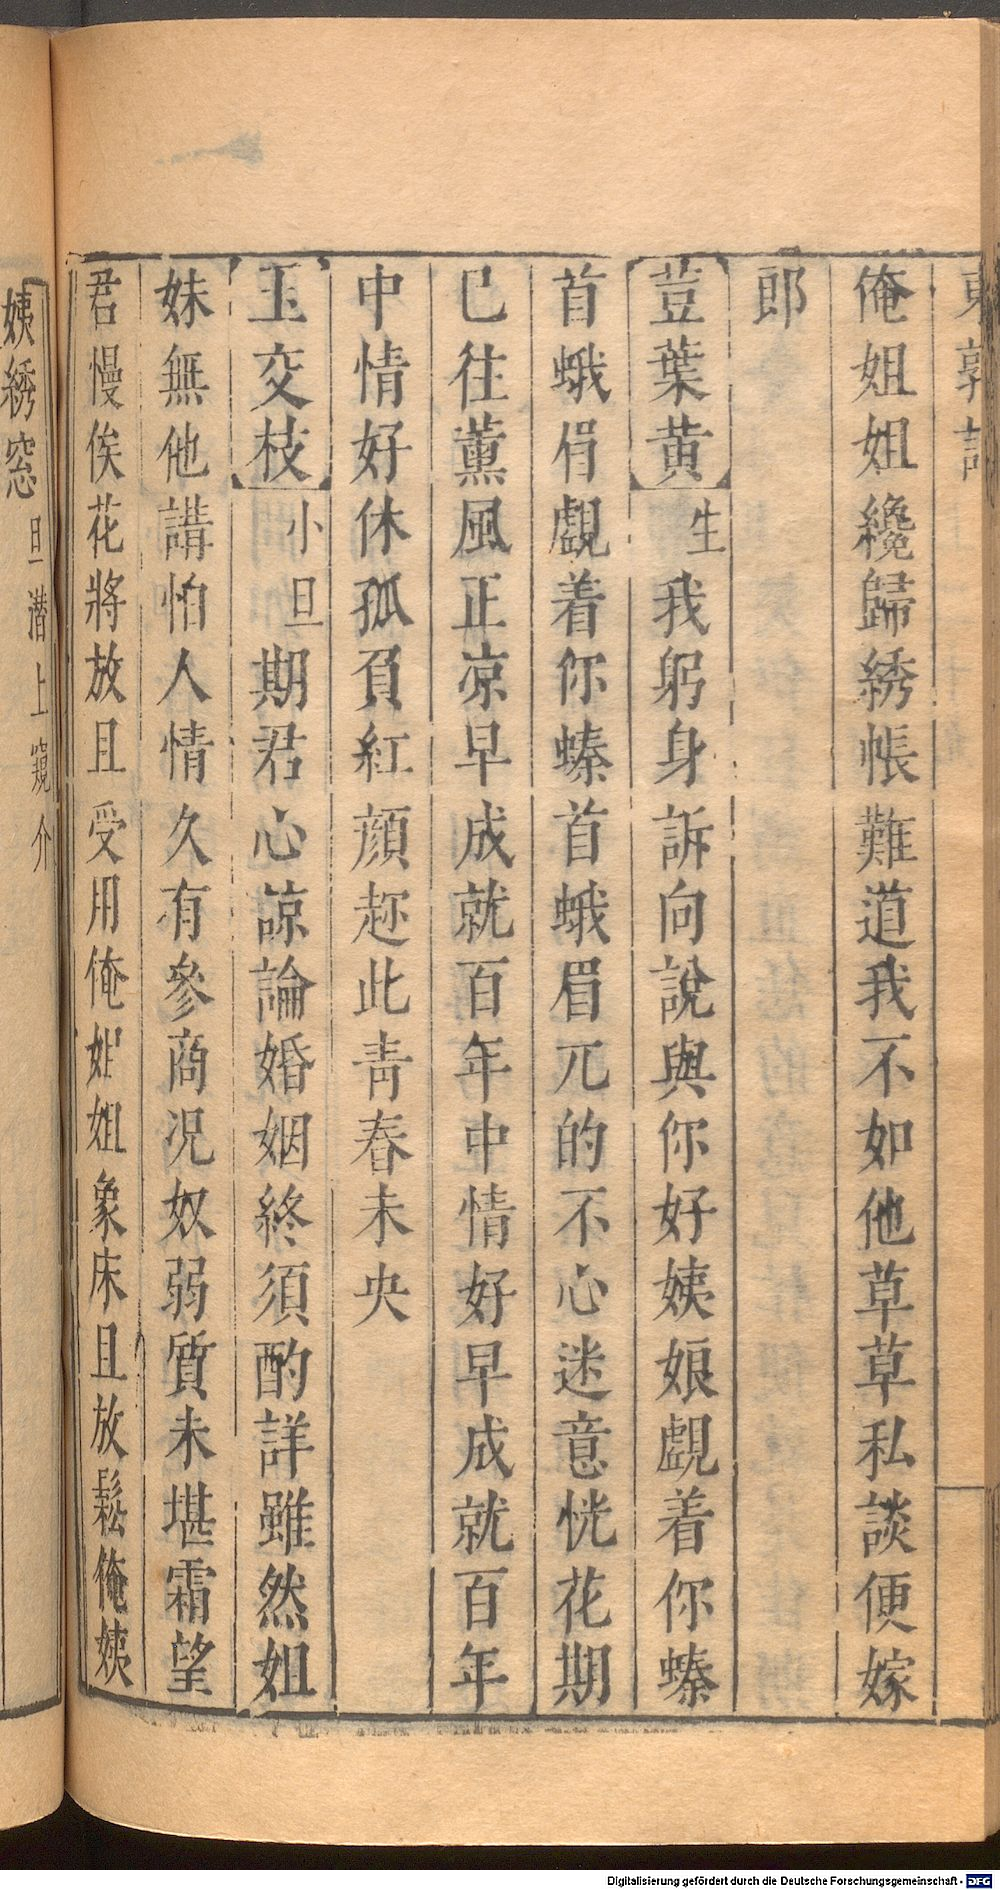 東郭記
俺姐姐纔歸綉帳難道我不如他草草私談便嫁
郎
荳葉黄生我躬身訴向說與你好姨娘覷着你螓
首蛾眉覷着你螓首蛾眉兀的不心迷意恍花期
已往薰風正凉早成就百年中情好早成就百年
中情好休孤負紅顔趂此靑春未央
玉交枝小旦期君心諒論婚姻終須酌詳雖然姐
妹無他講怕人情久有參商况奴弱質未堪霜望
君慢俟花將放且受用俺姐姐象床且放鬆俺姨
姨綉窓旦潜上窺介
Digitalisierung gefördert durch die Deutsche Forschungsgemeinschaft - DFG